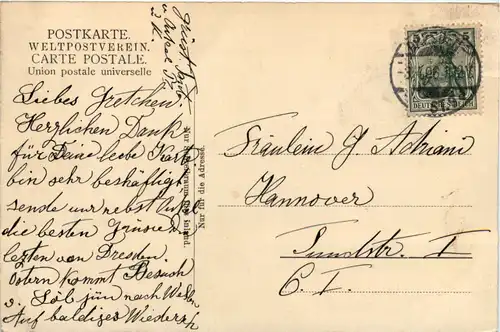 POSTKARTE.
WELTPOSTVEREIN.
CARTE POSTALE.
Union postale universelle
Liebes Gretchen.
Herzlichen Dank
für Deine liebe Karte
bin sehr beshäftigt
sende nur nebst
die besten Grüsse
letzten von Dresden.
Ostern kommt Besuch
nach
Auf baldiges Wiederseh
Nur für die Adresse.
Fräulein J. Adriani
Hannover
I
C. I.
5 5
DEUTSCHES REICH